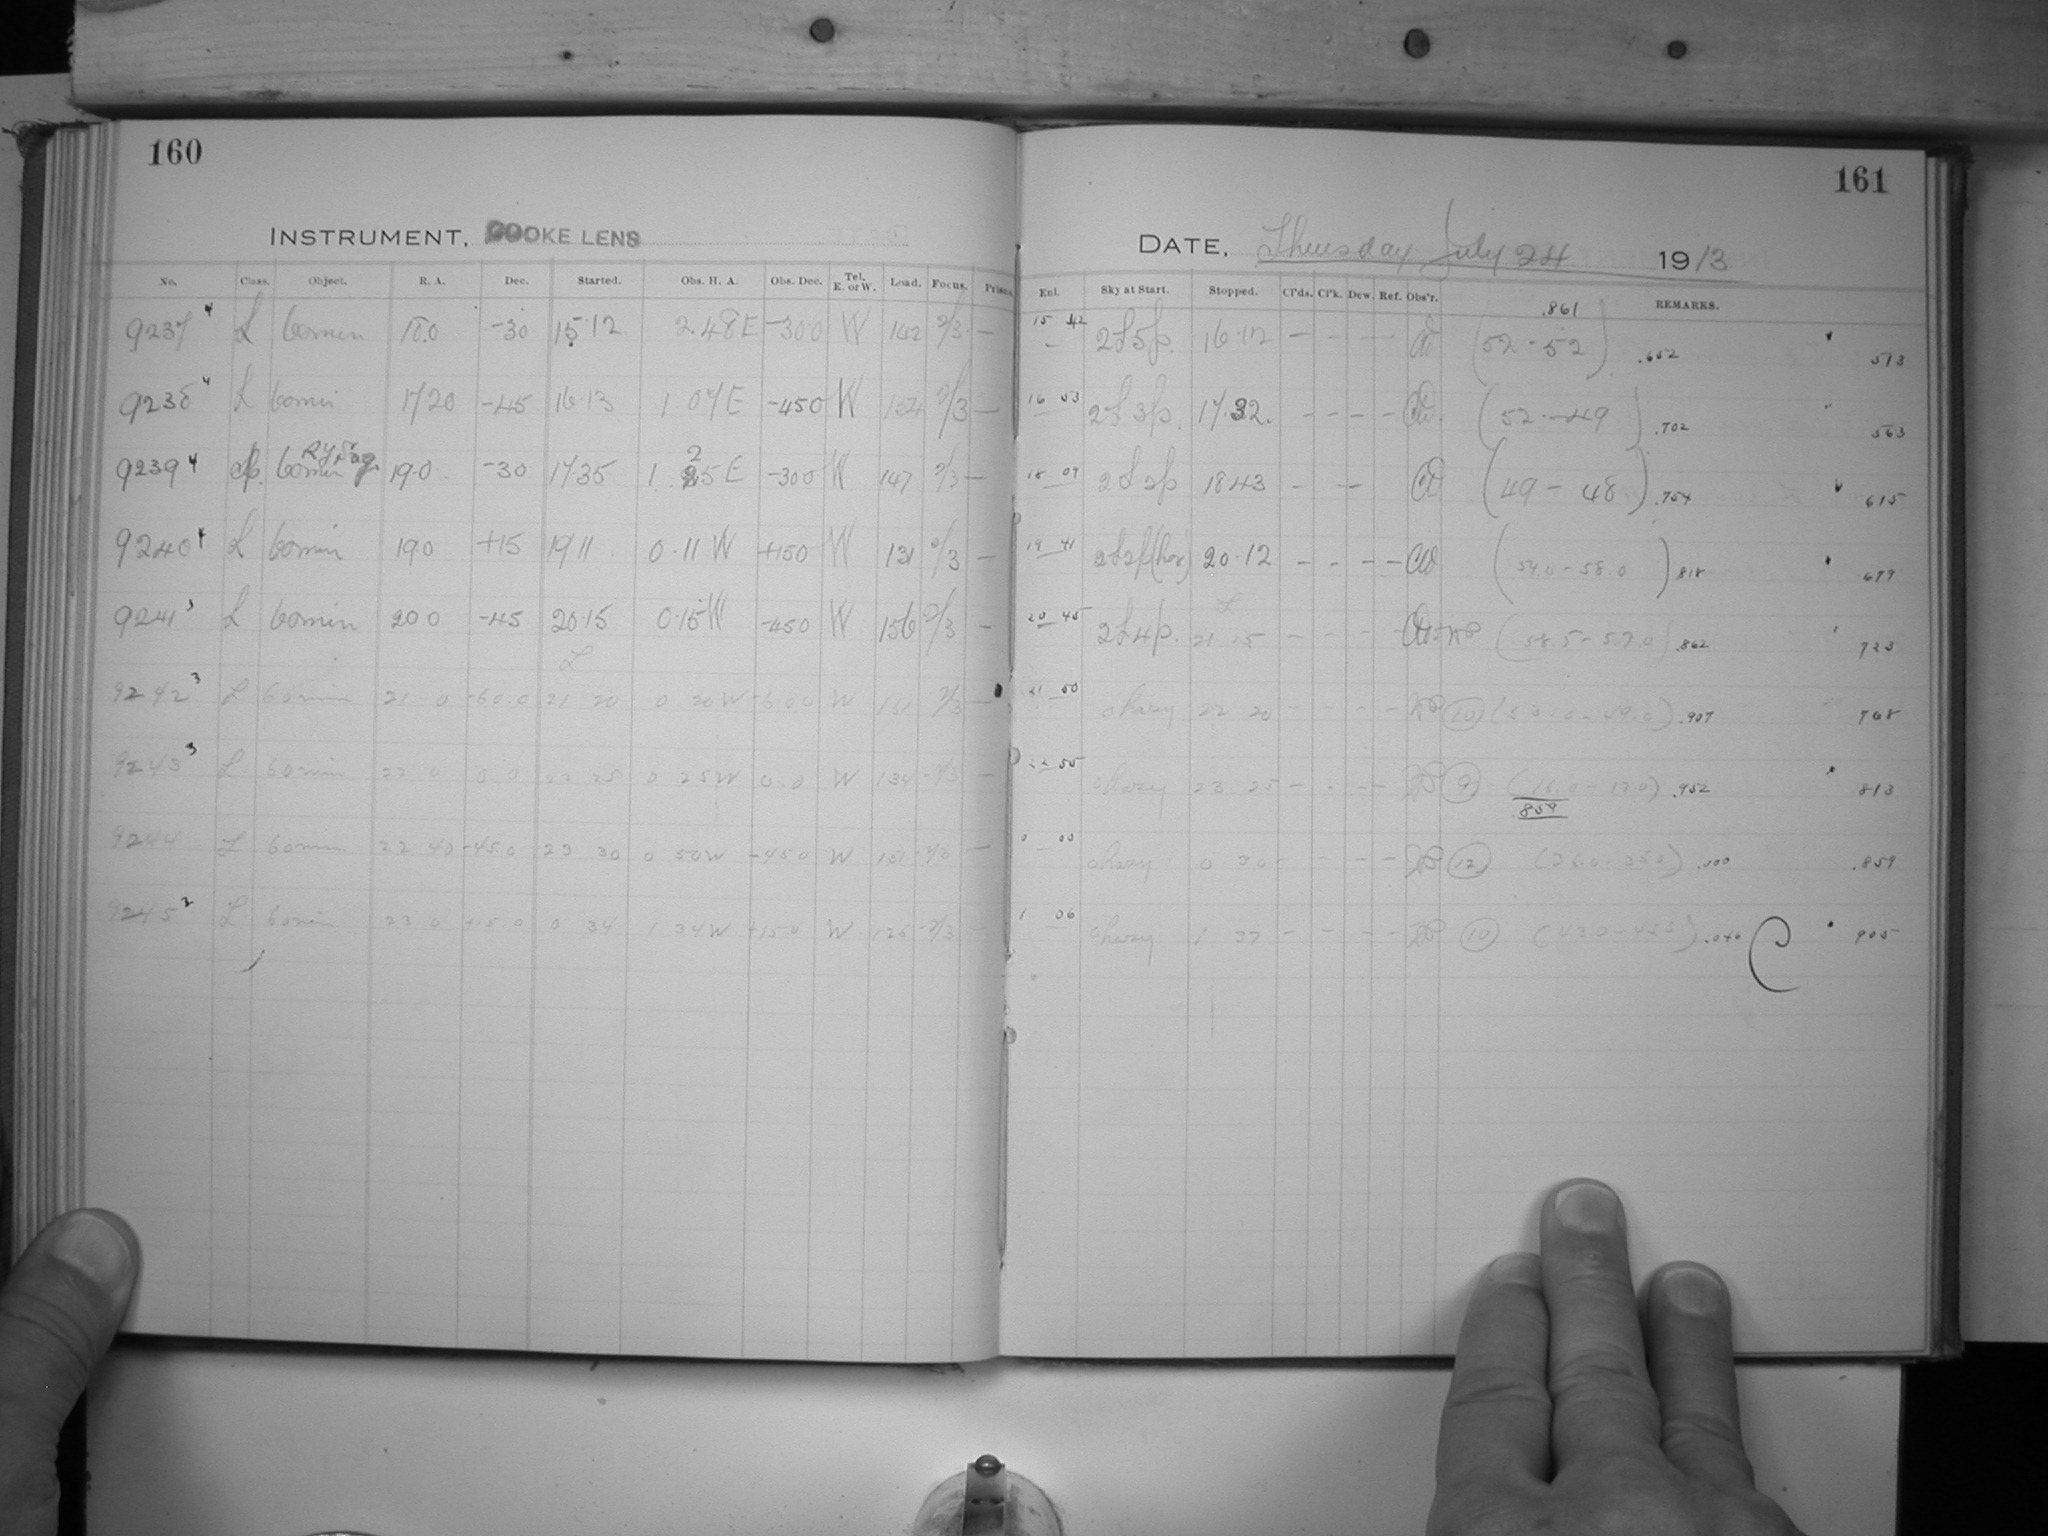 160
INSTRUMENT, COOKE LENS
No. Class. Object. R. A. Dec. Started. Obs. H. A. Obs. Dec. Tel. E. or W. Load. Focus. Prism.
9237 4 L 60 min 18.0 -30 15.12. 2.48 E -30 0 W 142 9/3 -
9238 4 L 60 min 17 20 -45 16.13 1.07 E -45 0 W 154 9/3 -
9239 4 sp. 60 min RY Sag. 19.0 -30 17.35 1. 25 E -30 0 W 147 9/3 -
9240 4 L 60 min 19.0 +15 19 11 0.11 W +15 0 W 131 9/3 -
9241 3 L 60 min 20 0 -45 20.15 0.15 W -45 0 W 156 9/3 -
9242 3 L 60 min 21 0 -60.0 21 20 0 20 W -60 0 W 151 9/3 -
9243 3 L 60 min 22 0 0 0 22 25 0 25 W 0.0 W 134 9/3 -
9244 L 60 min 22 40 -45.0 23 30 0 50 W -45 0 W 151 9/3 -
9245 2 L 60 min 23 0 +15 0 0 34 1 34 W +15 0 W 126 9/3 -
161
DATE, Thursday July 24 1913
Enl. Sky at Start. Stopped. Cl'ds. Cl'k. Dew. Ref. Obs'r. REMARKS.
.861
15 42 2 L 5 p. 16.12 - - - (52 - 52) .652 573
16 43 2 L 3 p. 17.32. - - - - (52 - 49) .702 563
18 09 2 L 2 p 18 43 - - (49 - 48) .754 615
19 41 2 L 2 p (haz) 20.12 - - - - (54.0 - 58.0) 818 679
20 45 2 L 4 p. 21 15 - - - - (58.5 - 57.0) .862 723
21 50 c hazy 22 20 - - - - (10) (53.0 - 49.0) .907 768
22 55 c hazy 23 25 - - - - (9) (16.0 - 17.0) .952 813
.859
0 00 c hazy 0 30 - - - - (12) .000 .859
1 06 c hazy 1 37 - - - - (10) (43.0 - 45.5) .040 905